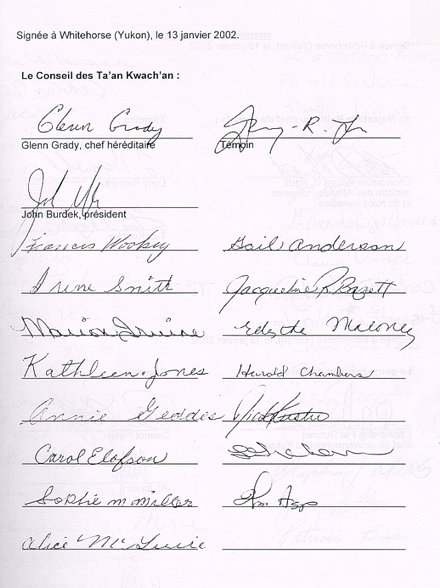 Signée à Whitehorse (Yukon), le 13 janvier 2002.
Le Conseil des Ta'an Kwach'an :
Glenn Grady
Glenn Grady, chef héréditaire Témoin
John Burdek, président
Francis Woolsey Gail Anderson
Irene Smith Jacqueline R. Bazett
Marion Edythe Maloney
Kathleen Jones Harold Chambers
Annie Geddes
Carol Elofson
Sophie M Miller
Alice McGuire